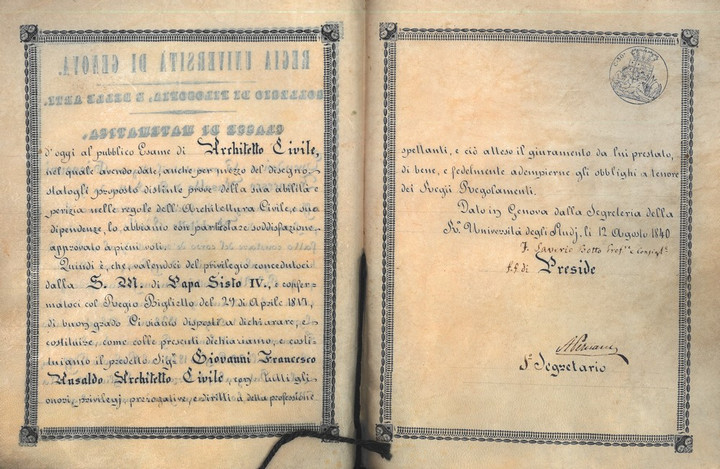 d'oggi al pubblico Esame di Architetto Civile,
nel quale avendo date, anche per mezzo del disegno
statogli proposto distinte prove della sua abilità e
perizia nelle regole dell'Architettura Civile, e sue
dipendenze, lo abbiamo con particolare soddisfazione
approvato a pieni voti.
Quindi è, che, valendoci del privilegio concedutoci
dalla S. M. di Papa Sisto IV., e confer-
matoci col Regio Biglietto del 29 di Aprile
di buon grado Ci siamo disposti a dichiarare, e
costituire, come colle presenti dichiariamo, e costi-
tuiamo il predetto Sig. Giovanni Francesco
Rusaldo Architetto Civile, con tutti gli
onori, privilegj, prerogative, e diritti a detta professione
spettanti, e ciò atteso il giuramento da lui prestato,
di bene, e fedelmente adempierne gli obblighi a tenore
dei Regii Regolamenti.
Dato in Genova dalla Segreteria della
R. Università degli Studj, li 12 Agosto 1840
F. Saverio Botto
f.f. di Preside
Segretario
REGIA UNIVERSITÀ DI GENOVA.
COLLEGIO DI FILOSOFIA, E BELLE ARTI.
CLASSE DI MATEMATICA.